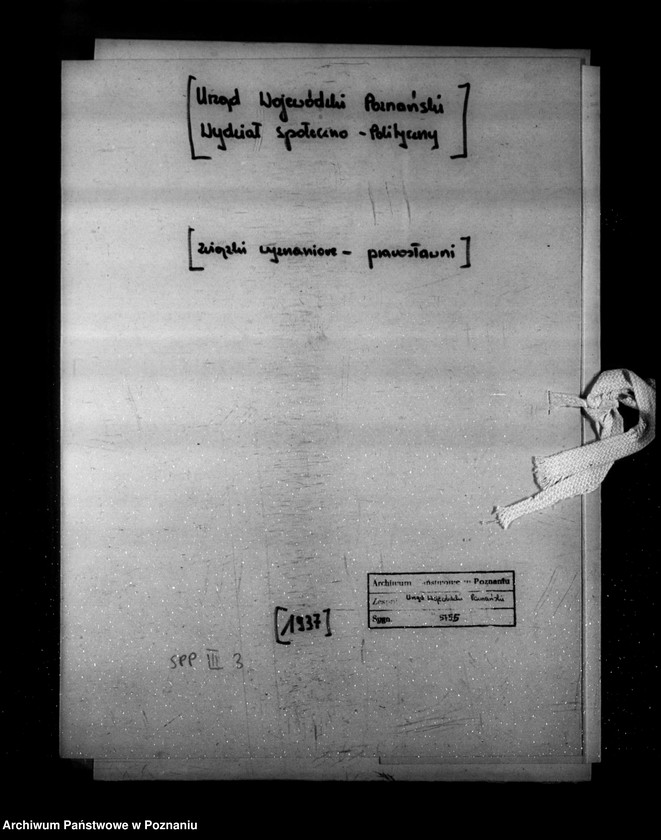 [Urząd Wojewódzki Poznański
Wydział Społeczno-Polityczny]
[Związki wyznaniowe - prawosławni]
Archiwum Państwowe w Poznaniu
Zespół Urząd Wojewódzki Poznański
Sygn. 5755
[1937]
SPP III 3
Archiwum Państwowe w Poznaniu